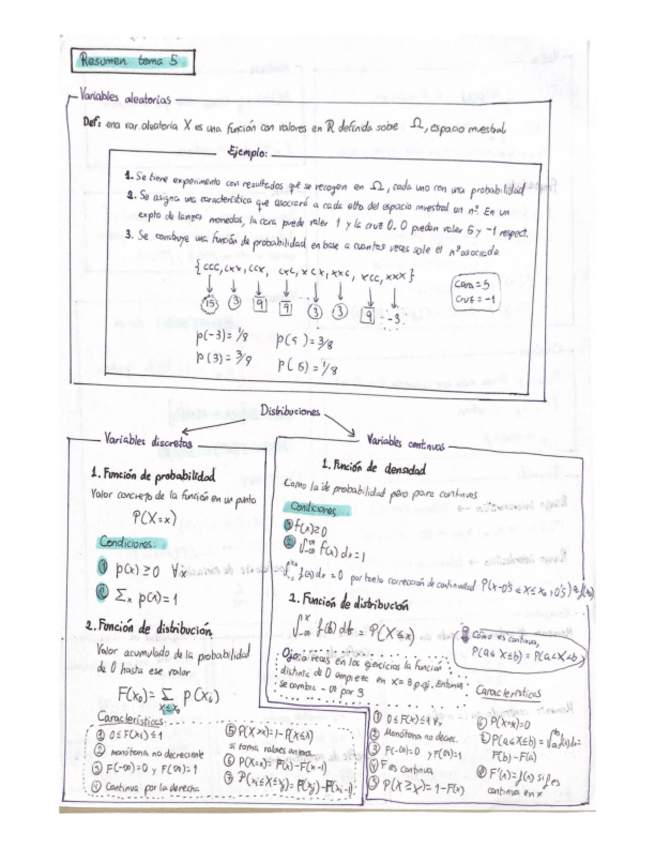 Resumen tema 5
Variables aleatorias
Def: una var. aleatoria X es una función con valores en R definida sobe Ω, espacio muestral
Ejemplo:
1. Se tiene experimento con resultados que se recogen en Ω, cada uno con una probabilidad
2. Se asigna una característica que asociará a cada elto del espacio muestral un nº. En un
expto de lanzar monedas, la cara puede valer 1 y la cruz 0. O pueden valer 5 y -1 respect.
3. Se construye una función de probabilidad en base a cuantas veces sale el nº asociado
{ CCC, CXX, CCX, CXC, XCX, XXC, XCC, XXX }
Cara = 5
Cruz = -1
15 3 9 9 3 3 9 -3
p(-3) = 1/8
p(3) = 3/8
Distribuciones
Variables discretas
Variables continuas
1. Función de probabilidad
Valor concreto de la función en un punto
P(X=x)
Condiciones:
① p(x) ≥ 0 ∀x
② Σx p(x) = 1
2. Función de distribución
Valor acumulado de la probabilidad
de 0 hasta ese valor
F(x₀) = Σ p(xᵢ)
x≤x₀
Características
① 0 ≤ F(x) ≤ 1
② monótona no decreciente
③ F(-∞)=0 y F(∞)=1
④ Continua por la derecha
⑤ P(X>x)=1-P(X≤x)
si toma valores
⑥ P(X=x) = F(x)-F(x-1)
⑦ P(xi≤X≤xj)=F(xj)-F(xi-1)
1. Función de densidad
Como la de probabilidad pero para continuas
Condiciones
① f(x)≥0
② ∫-∞^∞ f(x) dx = 1
f(x) dx = 0 por tanto corrección de continuidad
2. Función de distribución
∫-∞^x f(t) dt = P(X≤x)
Como es continua,
P(a≤X≤b) = P(a<X<b)
Ojo: a veces en los ejercicios la función
distinta de 0 empieza en x=3 p.ej. Entonces
se cambia -∞ por 3
Características
① 0≤F(x)≤1
② Monótona no decrec.
③ F(-∞)=0 y F(∞)=1
④ F es continua
⑤ P(X≥x) = 1-F(x)
⑥ P(X=x)=0
⑦ P(a≤X≤b)=∫a^b f(x)dx=
F(b)-F(a)
⑧ F'(x)=f(x) si f es
continua en x